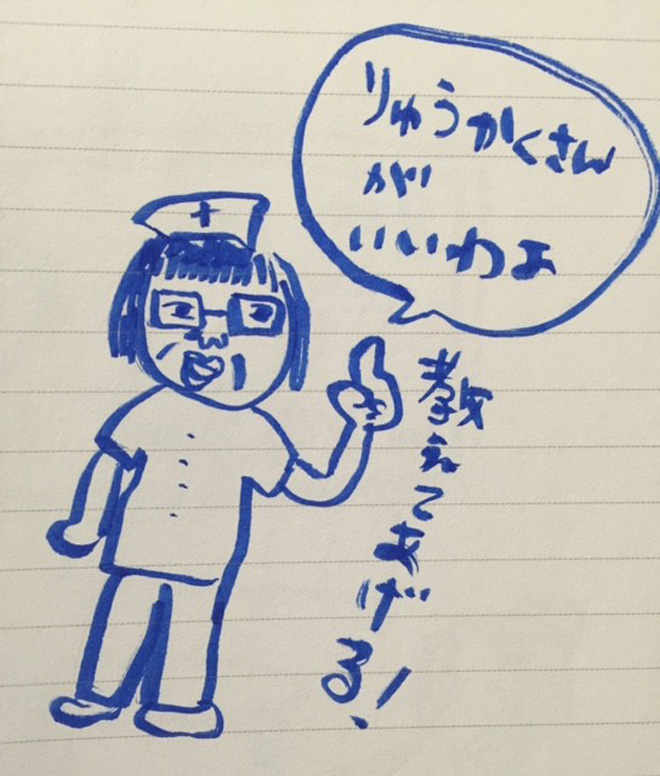 りゅうかくさん
が
いいわよ
教えてあげる!